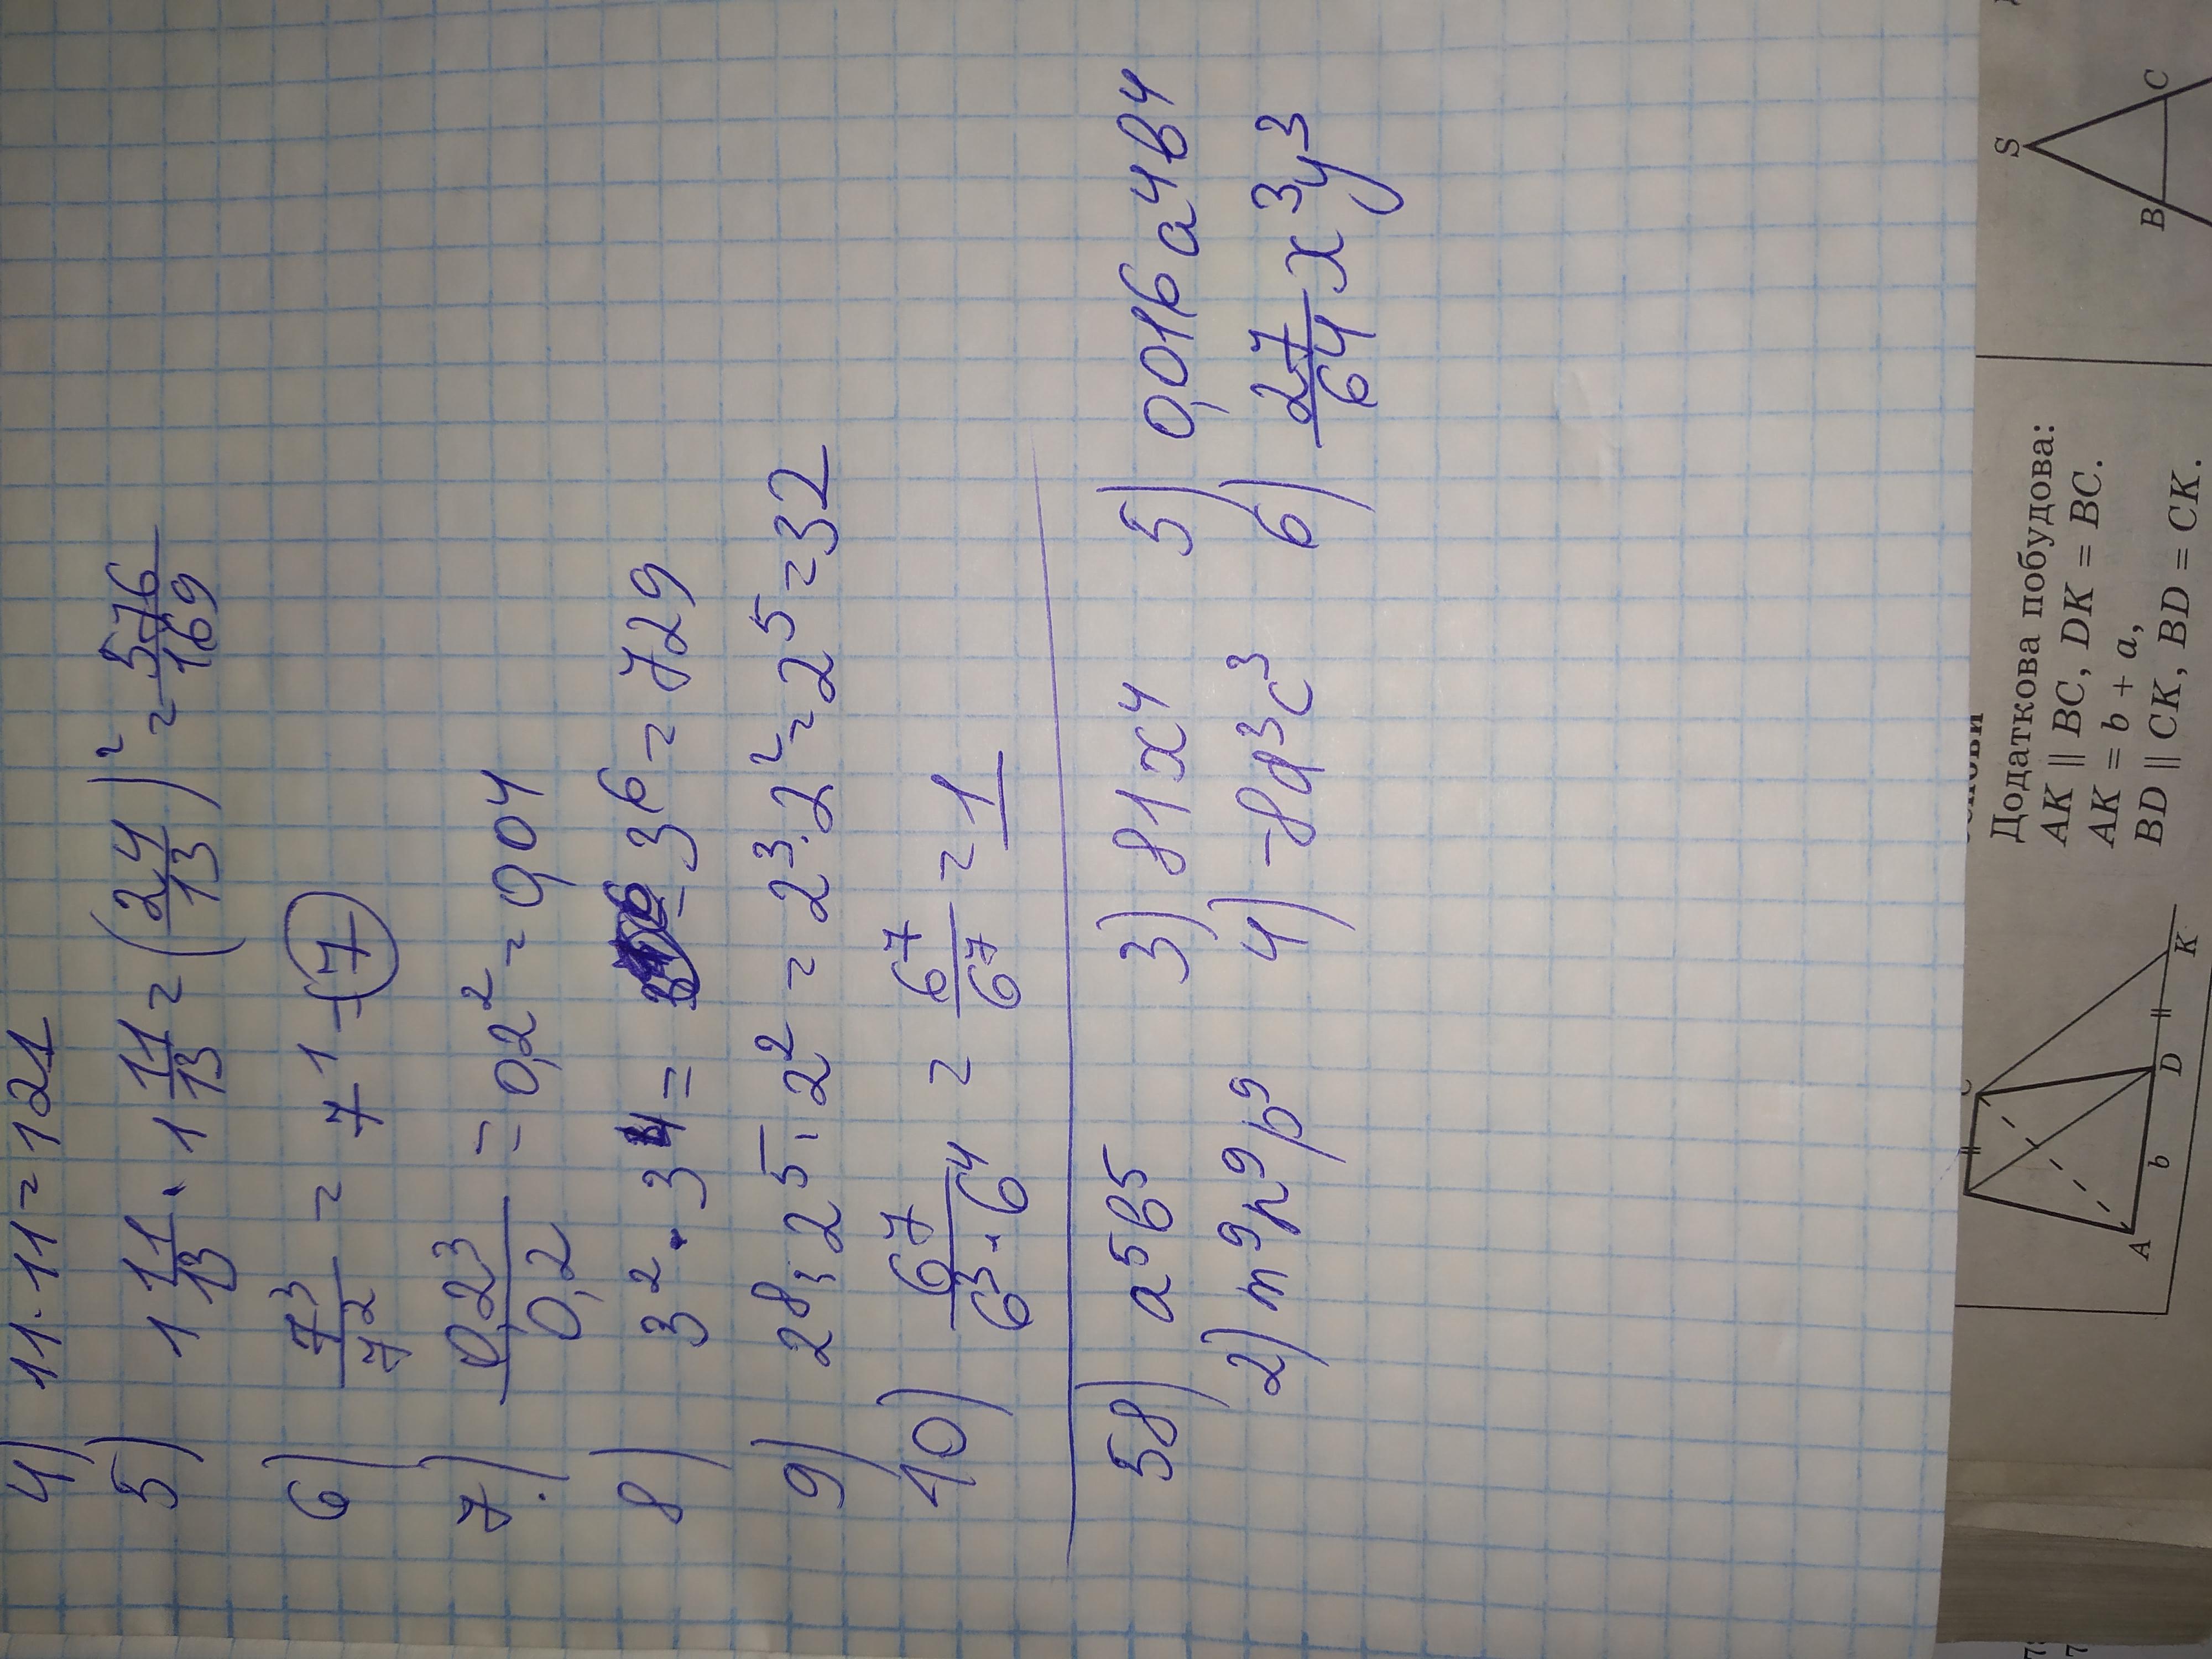 4) 11·11=121
5) 1 11/13 · 1 11/13 = (24/13)² = 576/169
6) 7³/7² = 7¹ = 7
7.) 0,2³/0,2 = 0,2² = 0,04
8) 3² · 3⁴ = 3⁶ = 729
9) 2⁸ : 2⁵ · 2² = 2³ · 2² = 2⁵ = 32
10) 6⁷/6³·6⁴ = 6⁷/6⁷ = 1
58) a⁵b⁵ 3) 81x⁴ 5) 0,016a⁴b⁴
2) m⁹n⁹p⁹ 4) -8d³c³ 6) 27/64 x³y³
Додаткова побудова:
AK || BC, DK = BC.
AK = b + a,
BD || CK, BD = CK.
A b D K
S
B C